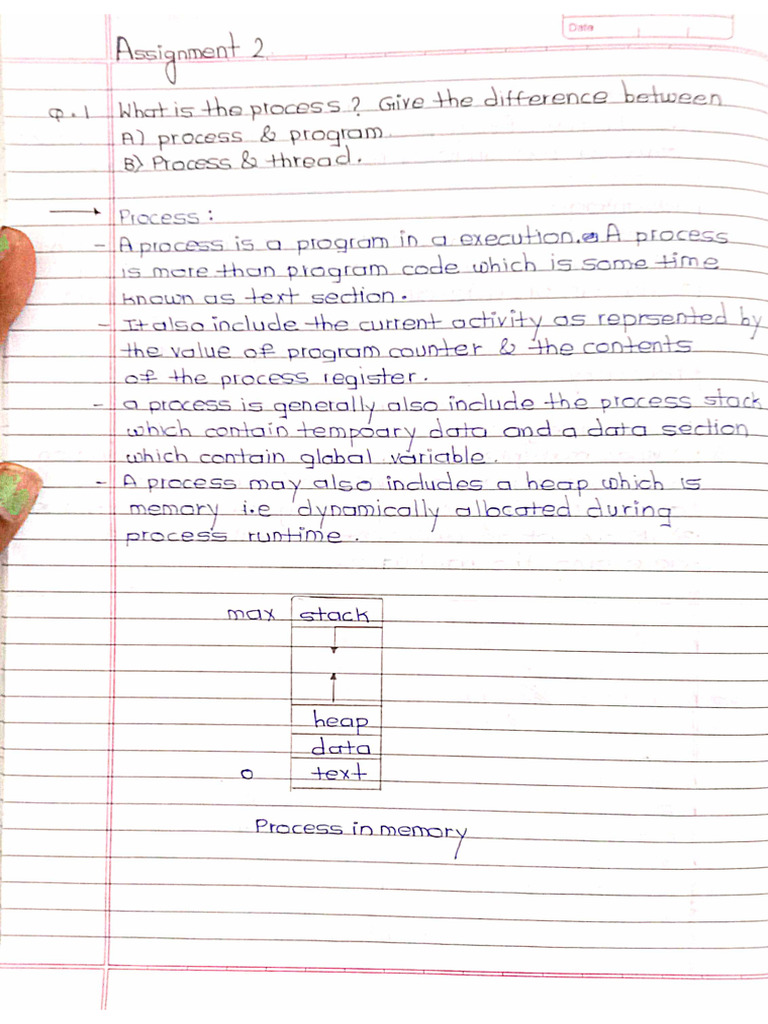 Date
Assignment 2
Q.1 What is the process? Give the difference between
A) process & program
B) Process & thread.
Process:
- A process is a program in a execution. A process
is more than program code which is some time
known as text section.
- It also include the current activity as reprsented by
the value of program counter & the contents
of the process register.
- a process is generally also include the process stack
which contain tempoary data and a data section
which contain global variable.
- A process may also includes a heap which is
memory i.e dynamically allocated during
process runtime.
max stack
heap
data
0 text
Process in memory